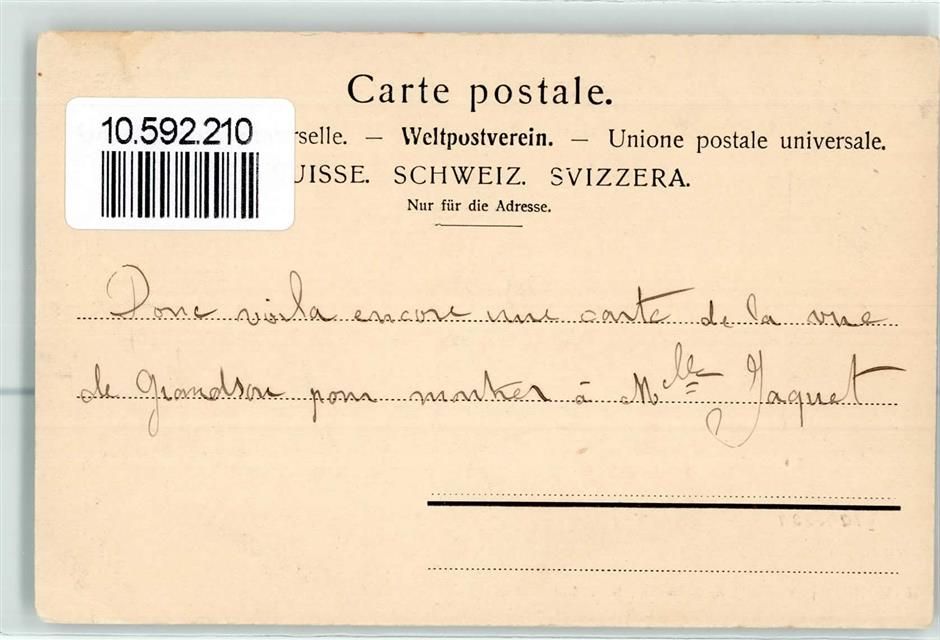 Carte postale.
10.592.210
rselle. — Weltpostverein. — Unione postale universale.
UISSE. SCHWEIZ. SVIZZERA.
Nur für die Adresse.
Donc voila encore une carte de la vue
de Grandson pour montrer à Mlle Jaquet